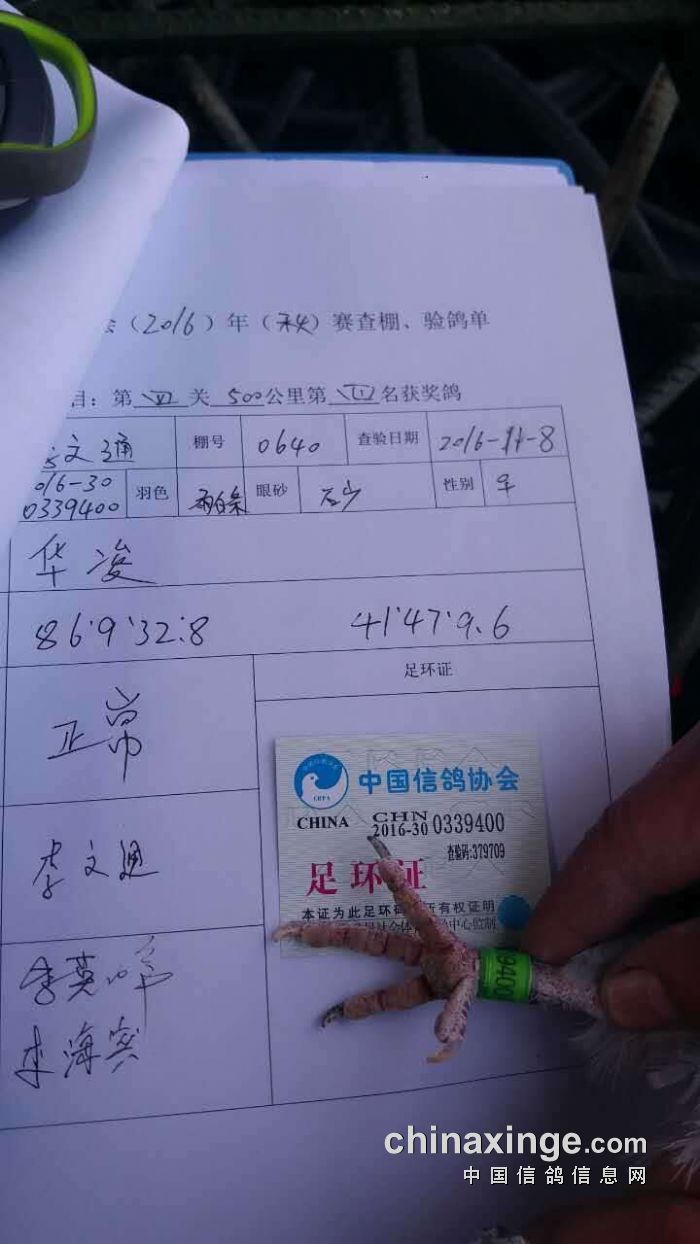 （2016）年（秋）赛查棚、验鸽单
目：第 四 关 500公里第 四 名获奖鸽
文通 棚号 0640 查验日期 2016-11-8
016-30
0339400 羽色 雨白条 眼砂 石少 性别 早
华 凌
86°9'32:8 41'47'9.6
足环证
正常
中国信鸽协会
CRPA
CHINA CHN
2016-30 0339400
查验码:379709
足环证
李文通
本证为此足环 所有权证明
中心监制
9400
李海宾
chinaxinge.com
中国信鸽信息网